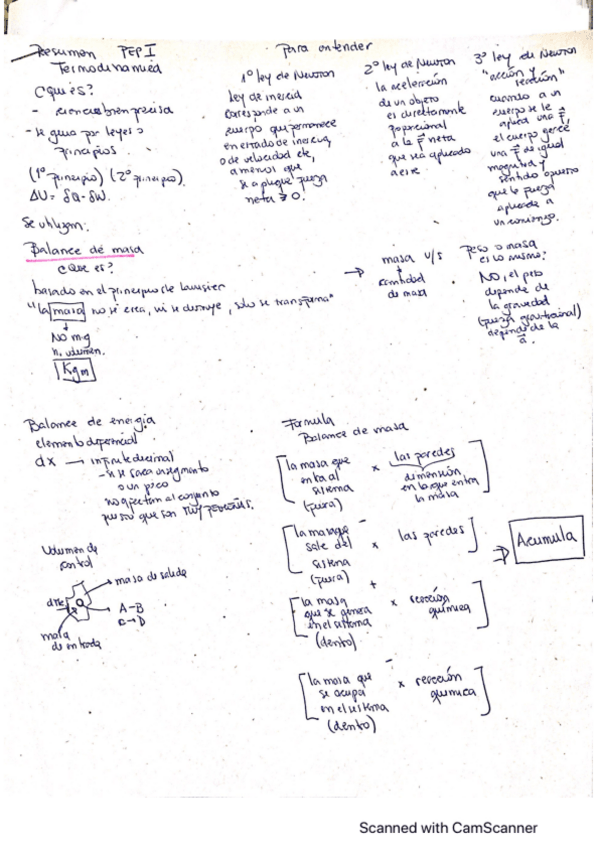 Resumen PEP I
Termodinamica
¿Que es?
- ciencia bien precisa
- se guia por leyes o
principios.
(1º principio) (2º principio).
ΔU = δQ - δW.
Para entender
1º ley de Newton
ley de inercia
corresponde a un
cuerpo que permanece
en estado de inercia,
o de velocidad cte,
a menos que
se aplique fuerza
neta ≠ 0.
2º ley de Newton
la aceleración
de un objeto
es directamente
proporcional
a la F neta
que sea aplicado
a este
3º ley de Newton
"acción y
reacción"
cuando a un
cuerpo se le
aplica una F,
el cuerpo ejerce
una F de igual
magnitud y
sentido opuesto
que la fuerza
aplicada
Se utilizan:
Balance de masa
¿Que es?
basado en el principio de
"la masa no se crea, ni se destruye, solo se transforma"
NO mg
n. volumen.
Kgm
→ masa v/s
cantidad
de masa
Peso o masa
es lo mismo?
NO, el peso
depende de
la gravedad
(fuerza gravitacional)
depende de la
a.
Balance de energia
elemento diferencial
dx → infinitedecimal
- si se saca un segmento
o un poco
no afectan al conjunto
puesto que son muy pequeñas.
Volumen de
control
masa de salida
A-B
C→D
masa
de entrada
Formula
Balance de masa
[la masa que entra al sistema (pura) x las paredes]
dimensión
en la que entra
la masa
-
[la masa que sale del sistema (pura) x las paredes]
⇒ Acumula
+
[la masa que se genera en el sistema (dento) x reacción quimica]
-
[la masa que se ocupa en el sistema (dento) x reacción quimica]
Scanned with CamScanner